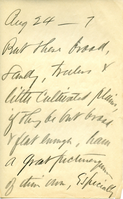 Aug 24 — 7
But these broad,
sandy, treeless &
little cultivated plains,
if they be but broad
& flat enough, have
a great picturesqueness
of their own, especially